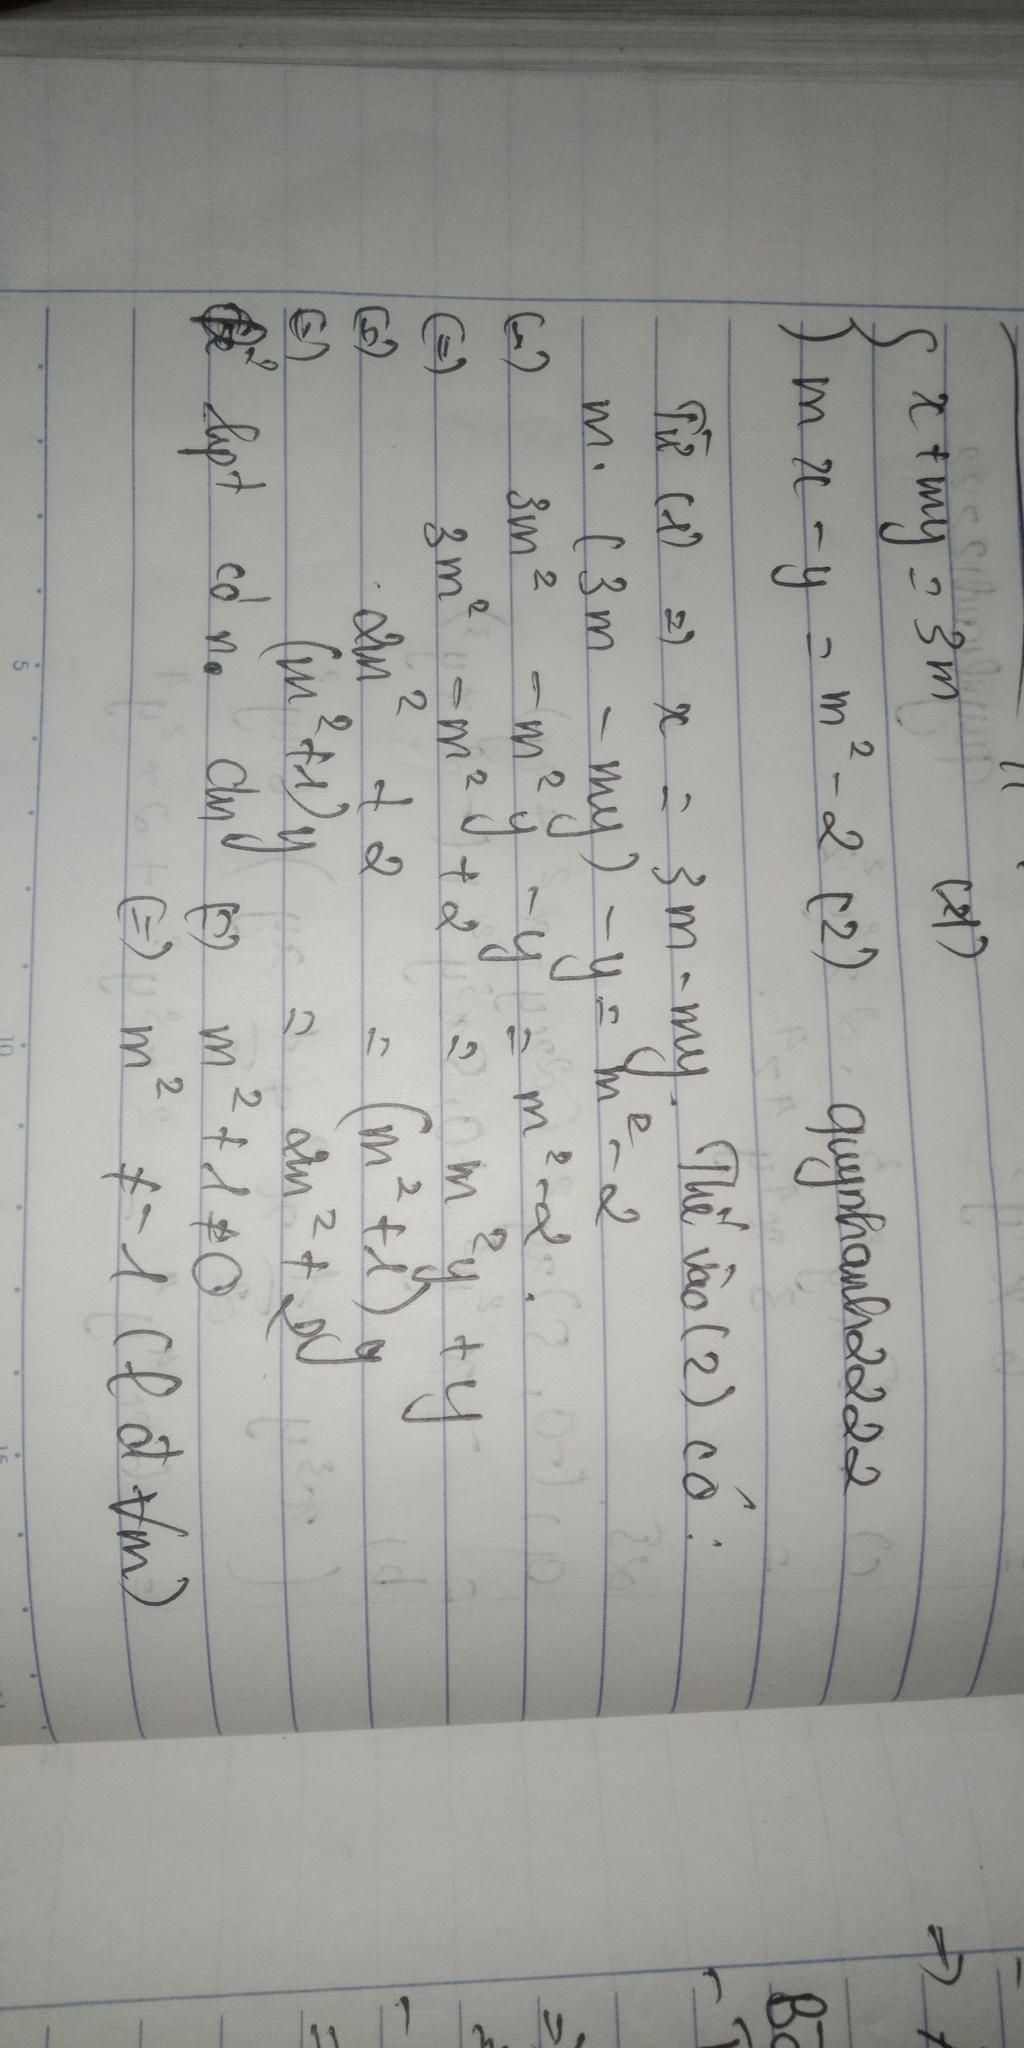 { x + my = 3m (1)
m x - y = m² - 2 (2) quynhanh2222
Từ (1) => x = 3m - my. Thế vào (2) có :
m. (3m - my) - y = m² - 2
(=) 3m² - m²y - y = m² - 2.
(=) 3m² - m²y + 2 = m²y + y
(=) 2m² + 2 = (m² + 1) y
(=) (m² + 1) y = 2m² + 2
hpt có n. duy (=) m² + 1 ≠ 0
(=) m² ≠ -1 (lđ ∀m)